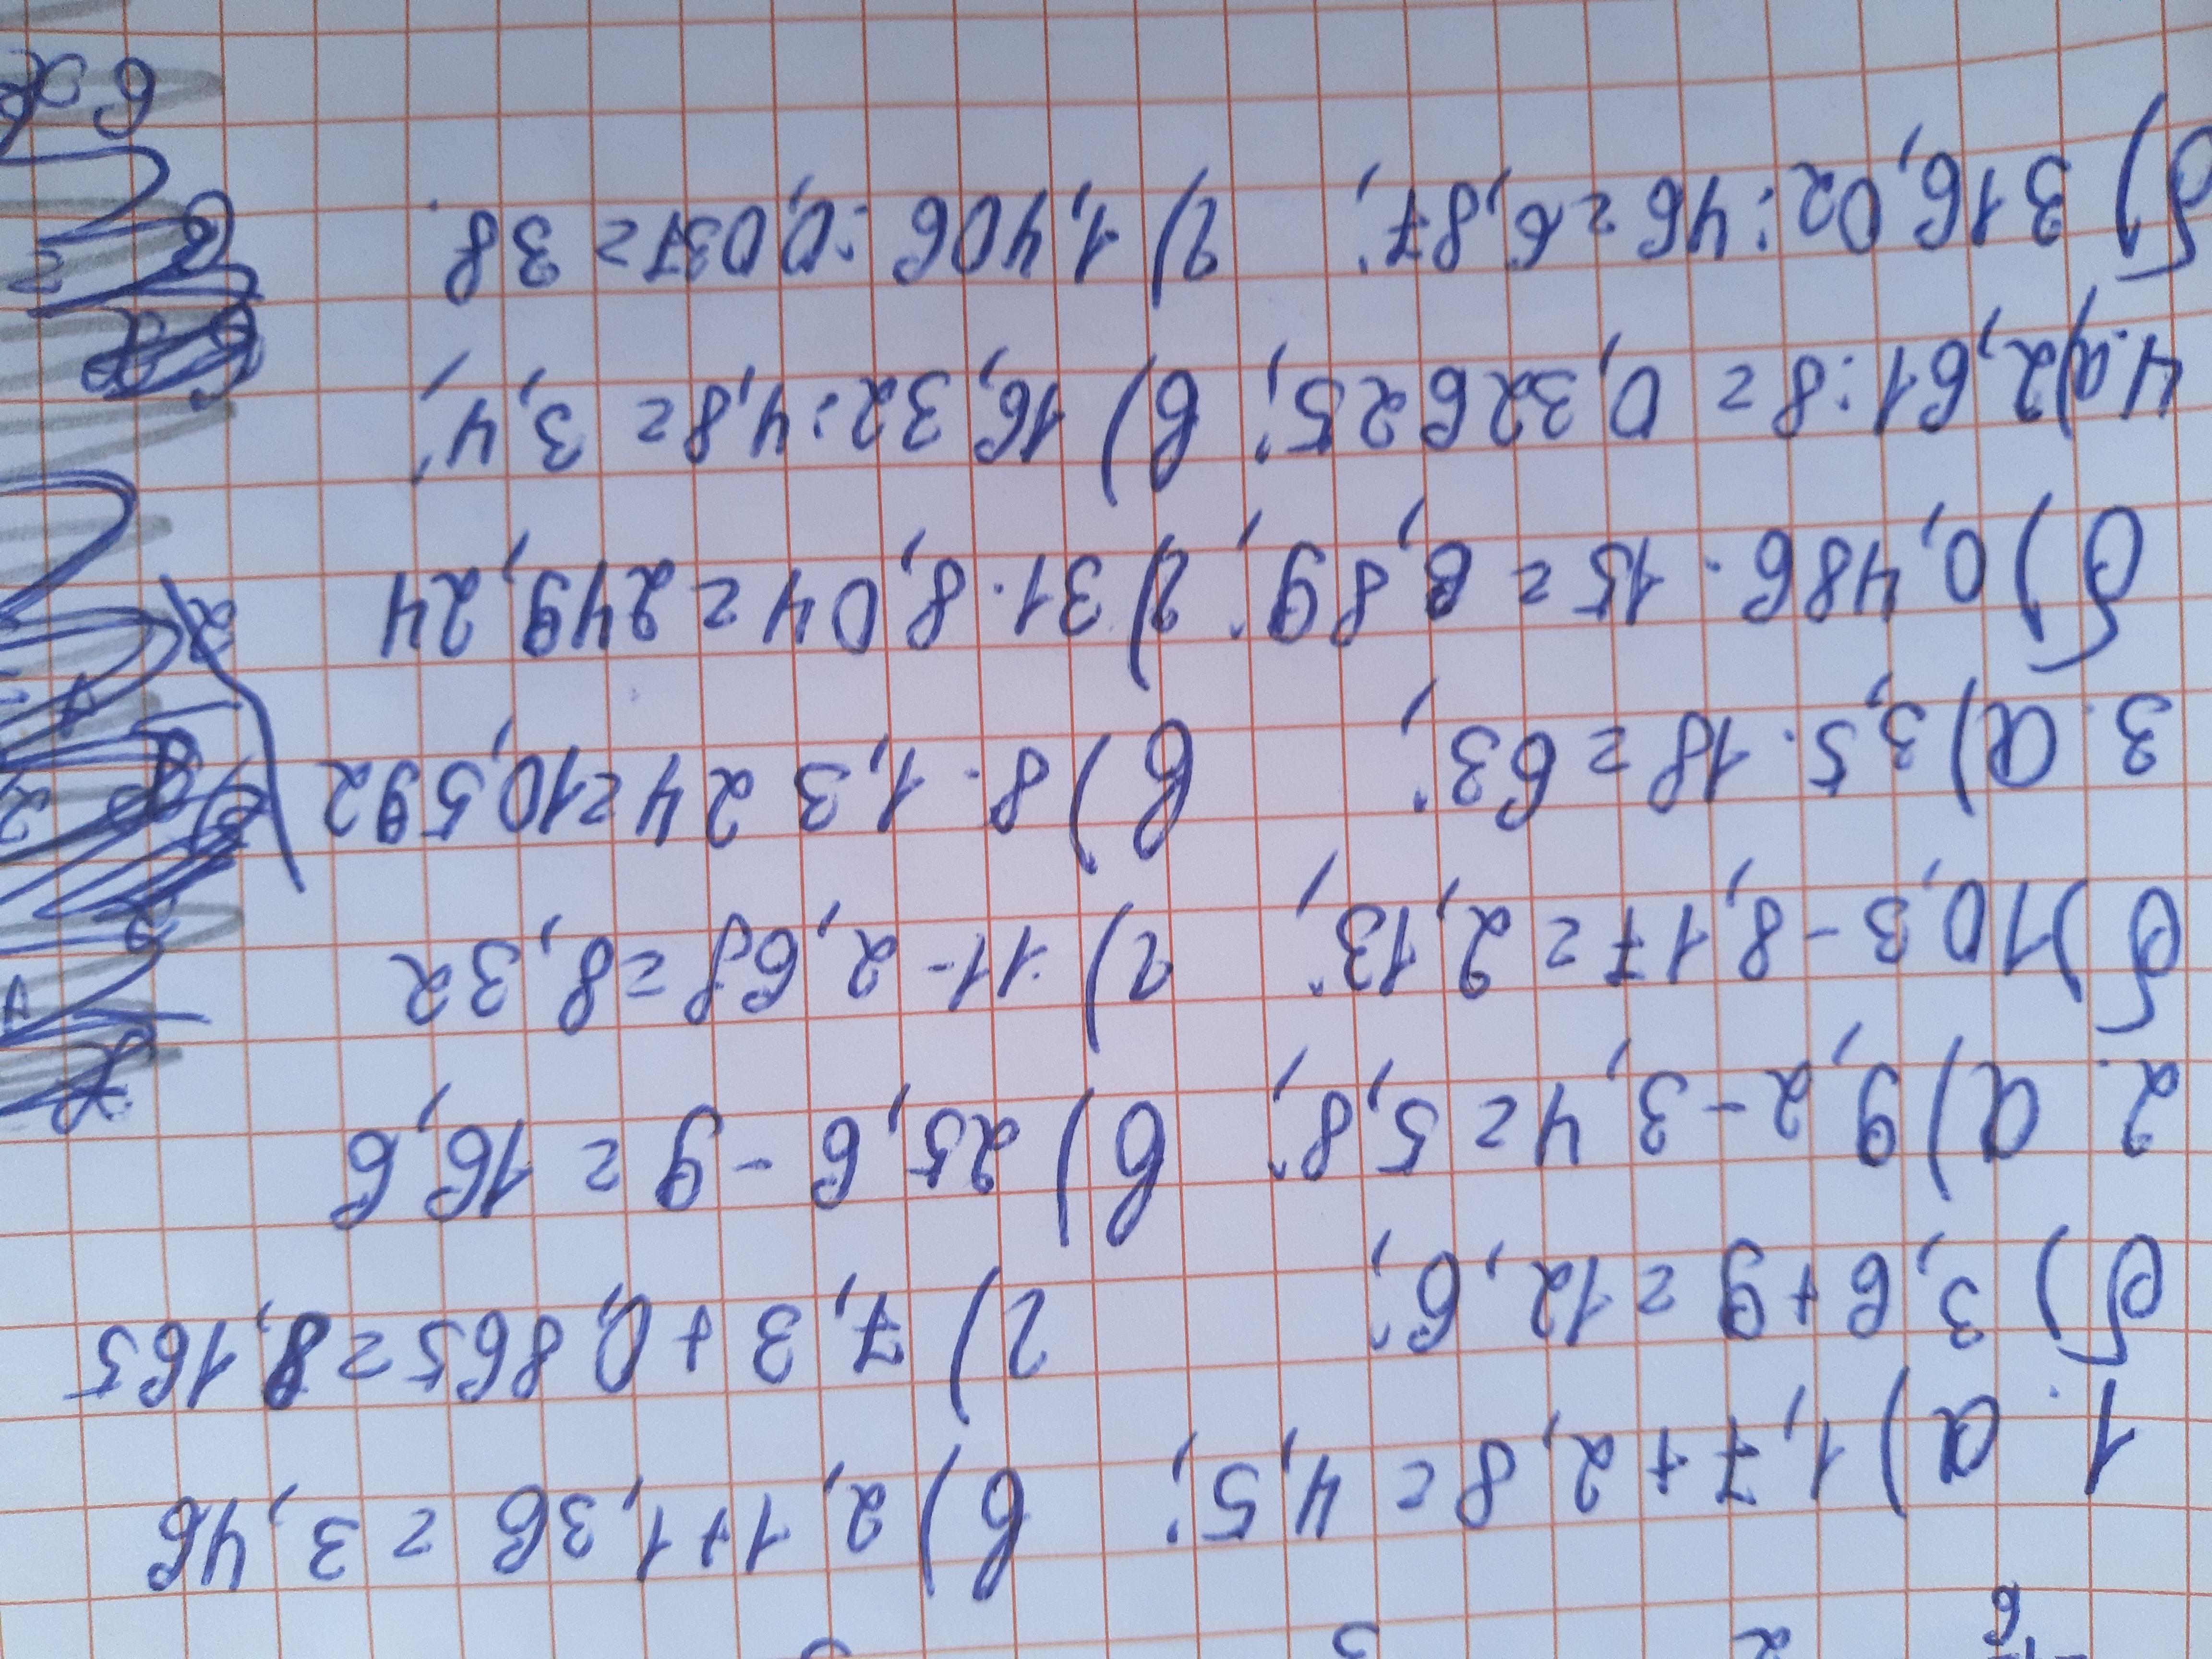 1. а) 1,7+2,8=4,5; в) 2,1+1,36=3,46
б) 3,6+9=12,6; г) 7,3+0,865=8,165
2. а) 9,2-3,4=5,8; в) 25,6-9=16,6
б) 10,3-8,17=2,13; г) 11-2,68=8,32
3. а) 3,5·18=63; в) 8·1,324=10,592
б) 0,486·15=8,89; г) 31·8,04=249,24
4. а) 2,61:8=0,32625; в) 16,32:4,8=3,4;
б) 316,02:46=6,87; г) 1,406:0,037=38.